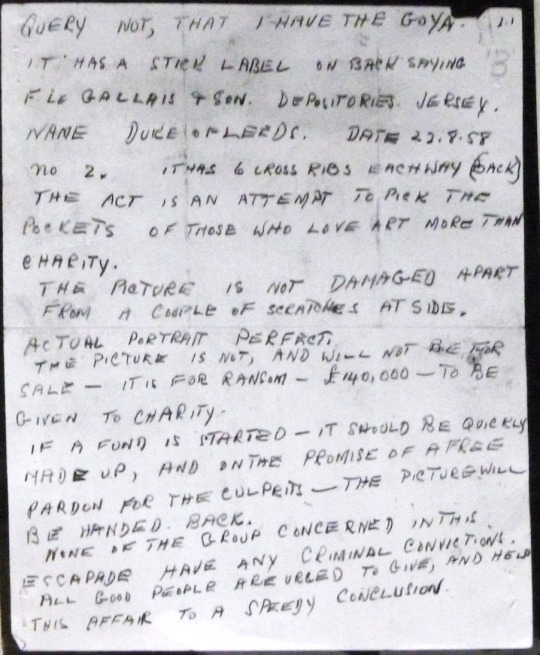 QUERY NOT, THAT I HAVE THE GOYA.
IT HAS A STICK LABEL ON BACK SAYING
F LE GALLAIS & SON. DEPOSITORIES. JERSEY.
NAME DUKE OF LEEDS. DATE 22.8.58
NO 2. IT HAS 6 CROSS RIBS EACHWAY (BACK)
THE ACT IS AN ATTEMPT TO PICK THE
POCKETS OF THOSE WHO LOVE ART MORE THAN
CHARITY.
THE PICTURE IS NOT DAMAGED APART
FROM A COUPLE OF SCRATCHES AT SIDE.
ACTUAL PORTRAIT PERFECT.
THE PICTURE IS NOT, AND WILL NOT BE FOR
SALE — IT IS FOR RANSOM — £140,000 — TO BE
GIVEN TO CHARITY.
IF A FUND IS STARTED — IT SHOULD BE QUICKLY
MADE UP, AND ON THE PROMISE OF A FREE
PARDON FOR THE CULPRITS — THE PICTURE WILL
BE HANDED BACK.
NONE OF THE GROUP CONCERNED IN THIS
ESCAPADE HAVE ANY CRIMINAL CONVICTIONS.
ALL GOOD PEOPLE ARE URGED TO GIVE, AND HELP
THIS AFFAIR TO A SPEEDY CONCLUSION.